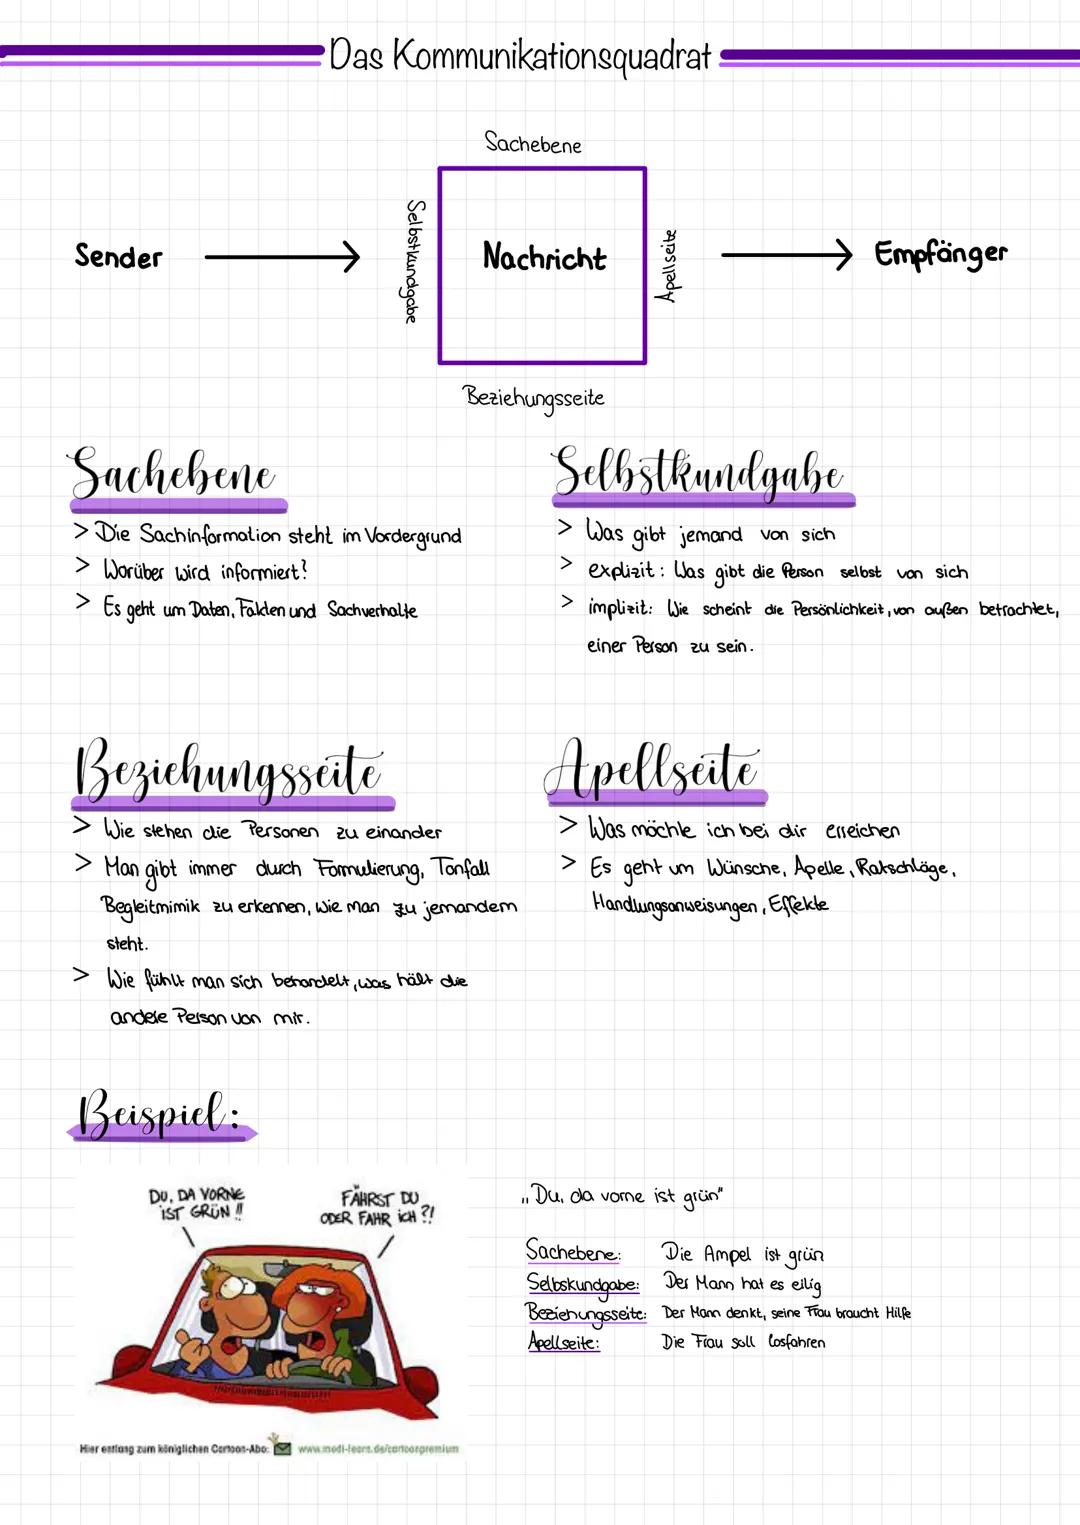 Das Kommunikationsquadrat
Sachebene
Sender
Selbstkundgabe
Nachricht
Apellseite
Empfänger
Beziehungsseite
Sachebene
> Die Sachinformation steht im Vordergrund
> Worüber wird informiert?
> Es geht um Daten, Fakten und Sachverhalte
Selbstkundgabe
> Was gibt jemand von sich
> explizit: Was gibt die Person selbst von sich
> implizit: Wie scheint die Persönlichkeit, von außen betrachtet,
einer Person zu sein.
Beziehungsseite
> Wie stehen die Personen zu einander
> Man gibt immer durch Formulierung, Tonfall
Begleitmimik zu erkennen, wie man zu jemandem
steht.
> Wie fühlt man sich behandelt, was hält die
andere Person von mir.
Apellseite
> Was möchte ich bei dir erreichen
> Es geht um Wünsche, Apelle, Ratschläge,
Handlungsanweisungen, Effekte
Beispiel:
DU, DA VORNE
IST GRÜN !!
FÄHRST DU
ODER FAHR ICH ?!
Hier entlang zum königlichen Cartoon-Abo: www.medi-learn.de/cartoonpremium
„Du, da vorne ist grün"
Sachebene: Die Ampel ist grün
Selbskundgabe: Der Mann hat es eilig
Beziehungsseite: Der Mann denkt, seine Frau braucht Hilfe
Apellseite: Die Frau soll losfahren